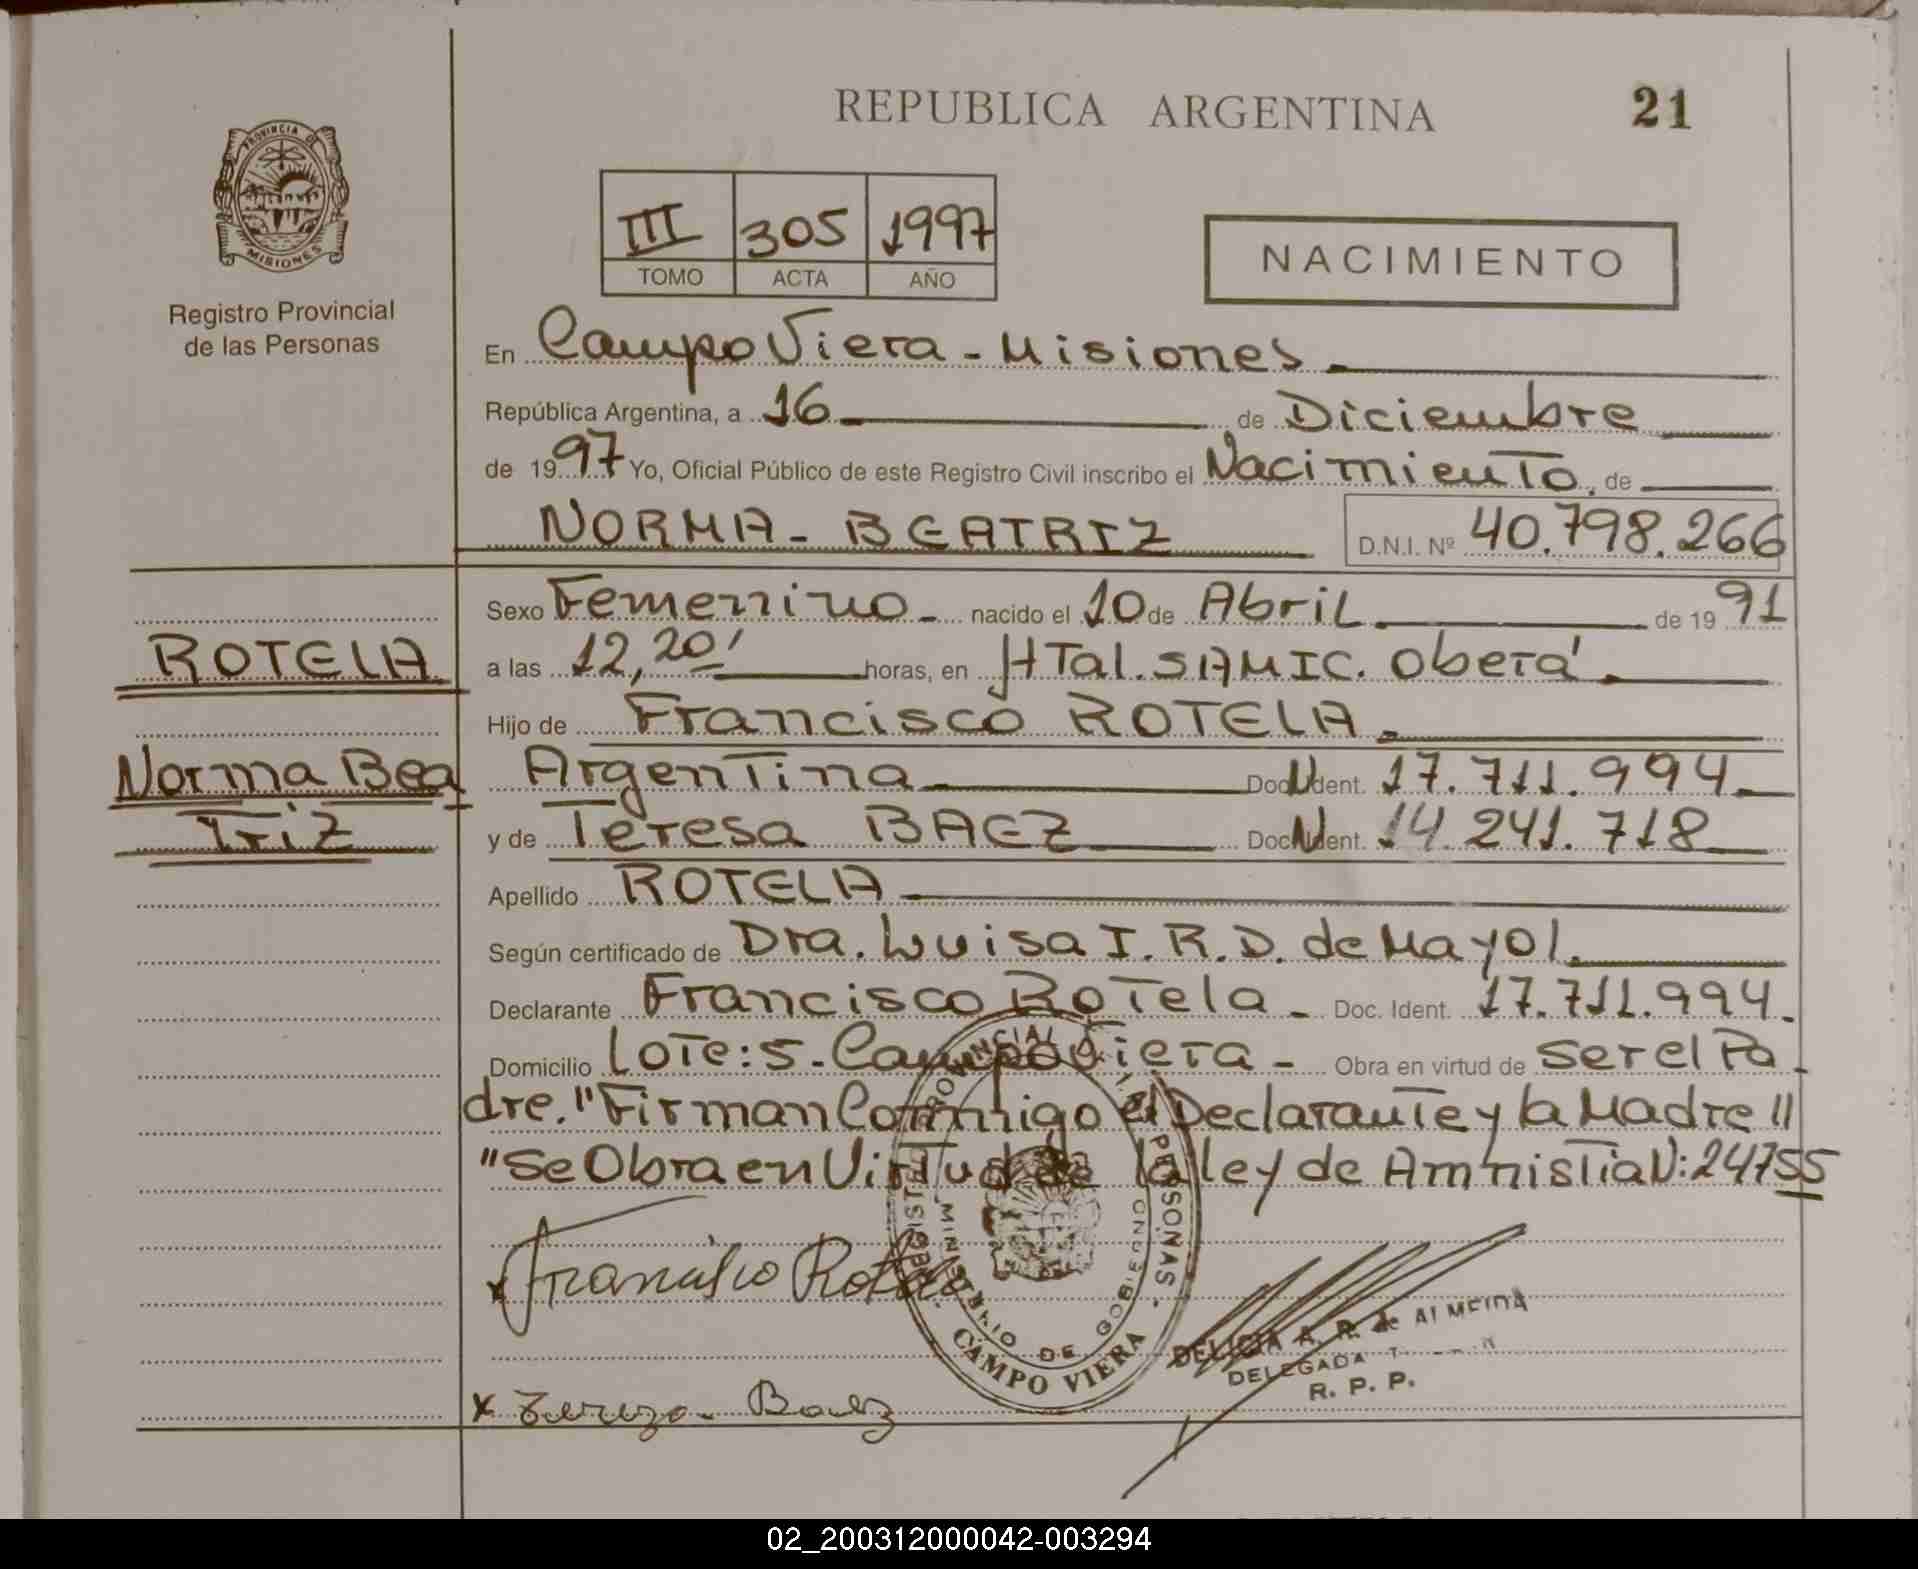 REPUBLICA ARGENTINA 21
PROVINCIA DE
MISIONES
Registro Provincial
de las Personas
III 305 1997
TOMO ACTA AÑO
NACIMIENTO
En Campo Viera - Misiones
República Argentina, a 16 de Diciembre
de 1997 Yo, Oficial Público de este Registro Civil inscribo el Nacimiento, de
NORMA - BEATRIZ D.N.I. Nº 40.798.266
Sexo Femenino nacido el 10 de Abril de 1991
ROTELA
a las 12,20' horas, en HTal. SAMIC. Oberá
Hijo de Francisco ROTELA
Norma Bea
Triz
Argentina Doc. Ident. 17.711.994
y de Teresa BAEZ Doc. Ident. 14.241.718
Apellido ROTELA
Según certificado de Dra. Luisa I. R. D. de Mayol.
Declarante Francisco Rotela - Doc. Ident. 17.711.994.
Domicilio Lote: 5 - Campo Viera - Obra en virtud de ser el Pa
dre. "Firman Conmigo el Declarante y la Madre"
"Se Obra en Virtud de la ley de Amnistia N: 24755
x Francisco Rotela
MINISTERIO DE GOBIERNO
CAMPO VIERA
DELICIA A. R. de ALMEIDA
DELEGADA
R. P. P.
x Tereza Baez
02_200312000042-003294